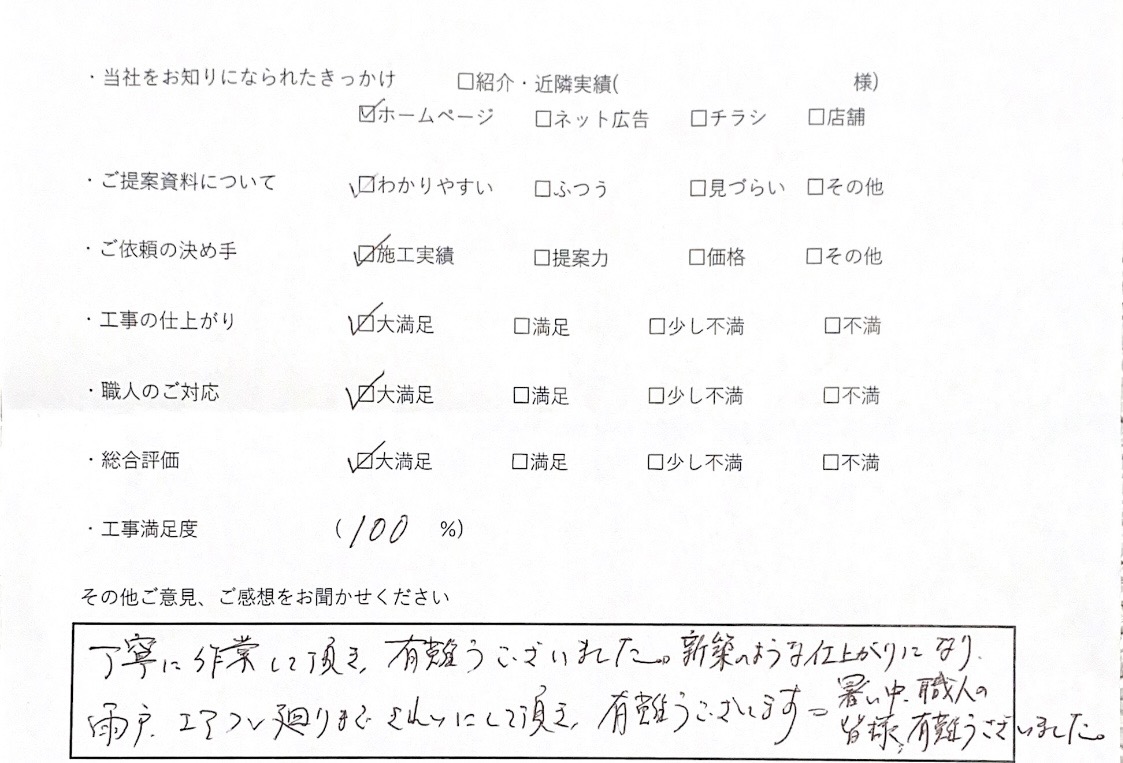 ・当社をお知りになられたきっかけ □紹介・近隣実績( 様)
☑ホームページ □ネット広告 □チラシ □店舗
・ご提案資料について ☑わかりやすい □ふつう □見づらい □その他
・ご依頼の決め手 ☑施工実績 □提案力 □価格 □その他
・工事の仕上がり ☑大満足 □満足 □少し不満 □不満
・職人のご対応 ☑大満足 □満足 □少し不満 □不満
・総合評価 ☑大満足 □満足 □少し不満 □不満
・工事満足度 (100 %)
その他ご意見、ご感想をお聞かせください
丁寧に作業して頂き、有難うございました。新築のような仕上がりになり、
雨戸、エアコン廻りまできれいにして頂き、有難うございます。
暑い中、職人の
皆様、有難うございました。